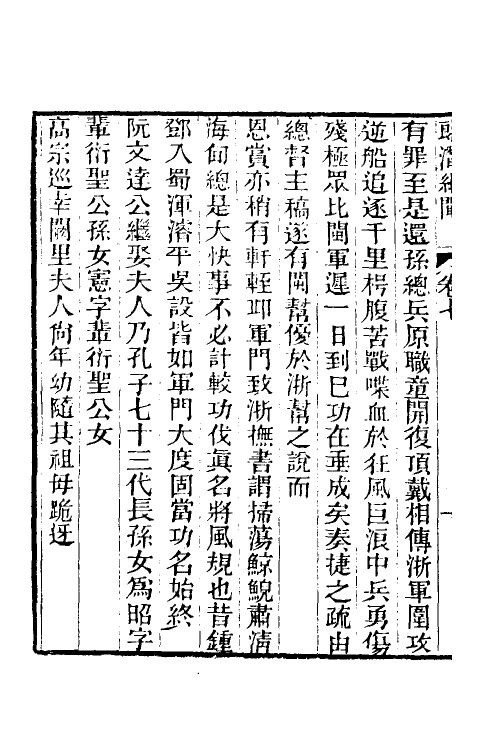 郎潛紀聞 卷七 一
有罪至是還孫總兵原職童開復頂戴相傳浙軍圍攻
逆船追逐千里枵腹苦戰喋血於狂風巨浪中兵勇傷
殘極眾比閩軍遲一日到巳功在垂成矣奏捷之疏由
總督主稿遂有閩幫優於浙幫之說而
恩賞亦稍有軒輊邱軍門致浙撫書謂掃蕩鯨鯢肅清
海甸總是大快事不必計較功伐眞名將風規也昔鍾
鄧入蜀渾濬平吳設皆如軍門大度固當功名始終
阮文達公繼娶夫人乃孔子七十三代長孫女爲昭字
輩衍聖公孫女憲字輩衍聖公女
高宗巡幸闕里夫人尙年幼隨其祖母跪迓